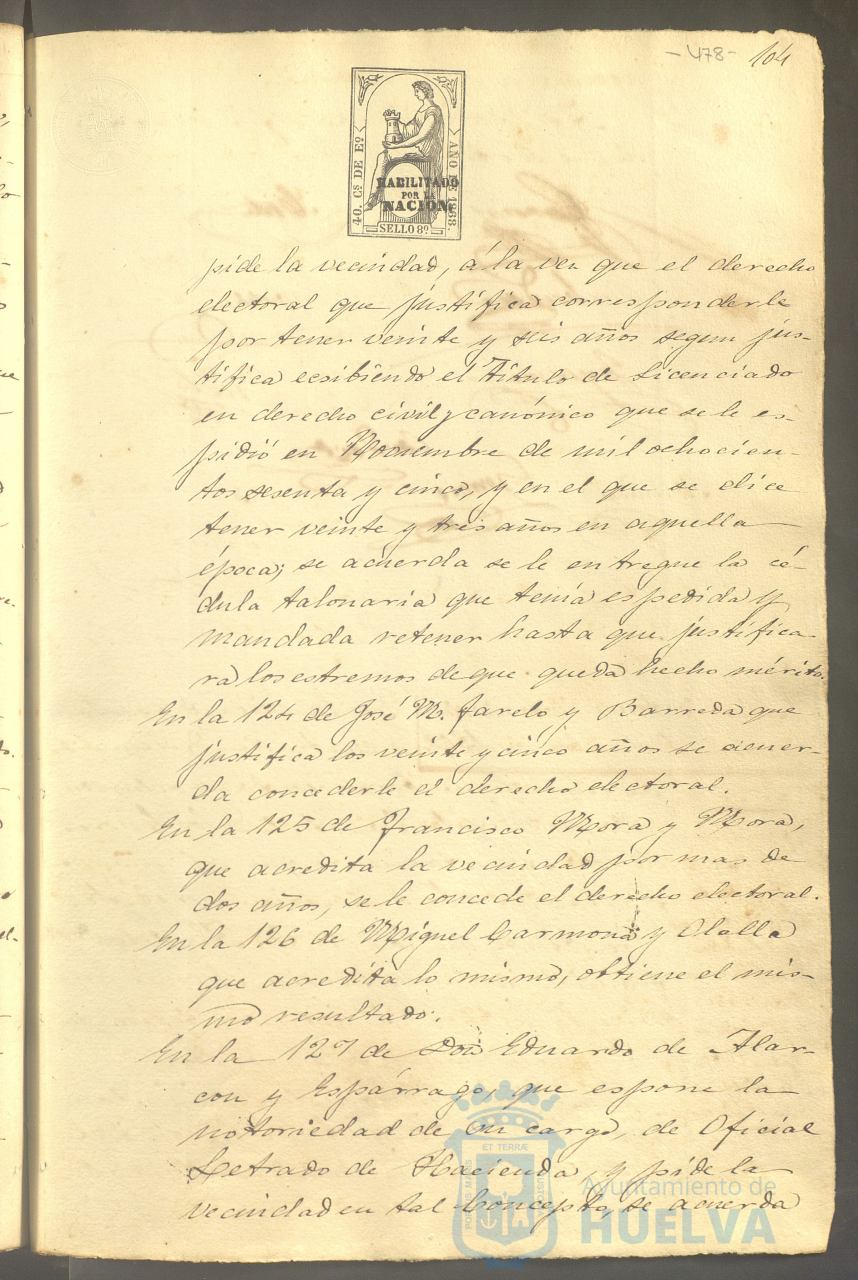 - 478 - 104
40. Cs DE Eo
AÑO DE 1868.
HABILITADO
POR LA
NACION.
SELLO 8o.
pide la vecindad, á la vez que el derecho
electoral que justifica corresponderle
por tener veinte y seis años segun jus-
tifica ecsibiendo el Título de Licenciado
en derecho civil y canónico que se le es-
pidió en Noviembre de mil ochocien-
tos sesenta y cinco, y en el que se dice
tener veinte y tres años en aquella
época; se acuerda se le entregue la cé-
dula talonaria que tenia espedida y
mandada retener hasta que justifica-
ra los estremos de que queda hecho mérito.
En la 124 de José M. Jarelo y Barreda que
justifica los veinte y cinco años se acuer-
da concederle el derecho electoral.
En la 125 de Francisco Mora y Mora,
que acredita la vecindad por mas de
dos años, se le concede el derecho electoral.
En la 126 de Miguel Carmona y Olalla
que acredita lo mismo, obtiene el mis-
mo resultado.
En la 127 de Don Eduardo de Alar-
con y Espárrago, que espone la
notoriedad de su cargo, de Oficial
Letrado de Hacienda, y pide la
vecindad en tal Concepto, se acuerda
ET TERRÆ
PORTUS MARIS
CUSTODIA
Ayuntamiento de
HUELVA